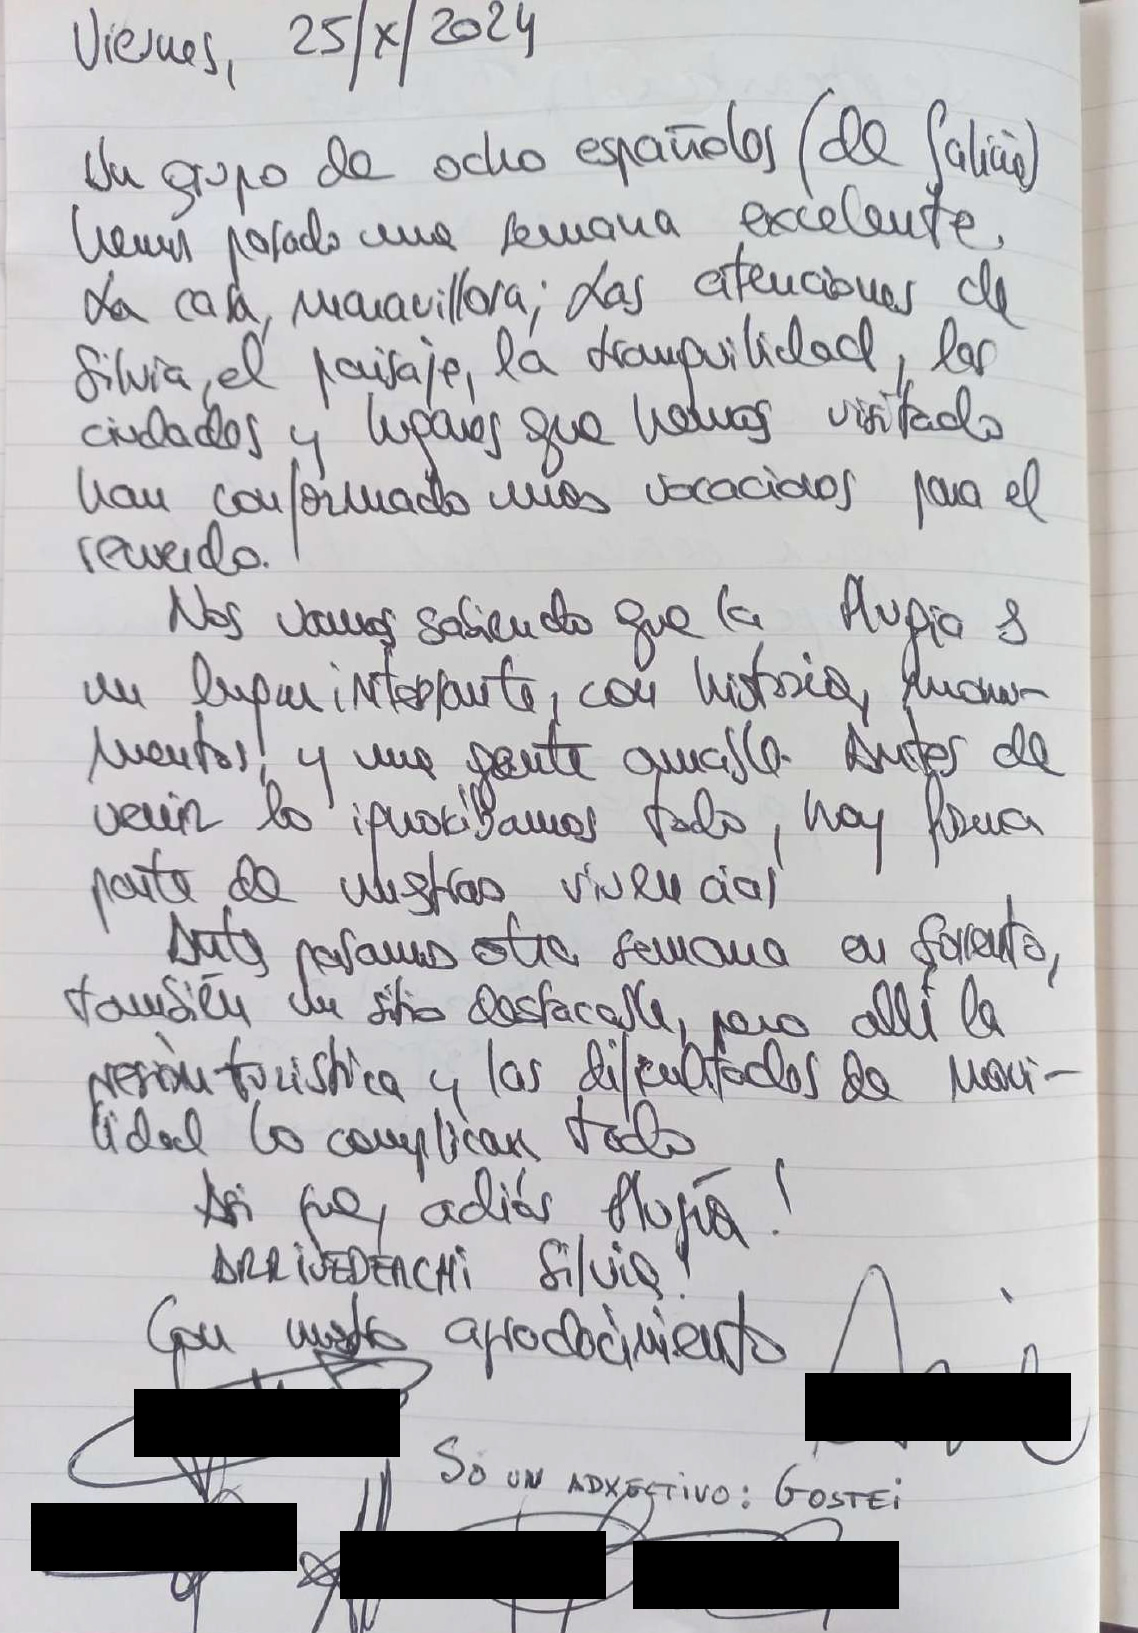 Viernes, 25/X/2024
Un grupo de ocho españoles (de Galicia)
hemos pasado una semana excelente.
La casa, maravillosa; Las atenciones de
Silvia, el paisaje, la tranquilidad, las
ciudades y lugares que hemos visitado
han conformado unas vacaciones para el
recuerdo.
Nos vamos sabiendo que la Puglia es
un lugar interesante, con historia, monu-
mentos, y una gente amable. Antes de
venir lo ignorábamos todo, hoy forma
parte de nuestras vivencias
Antes pasamos otra semana en Sorrento,
también un sitio destacable, pero allí la
presión turística y las dificultades de movi-
lidad lo complican todo
Así que, adiós Puglia!
ARRIVEDERCHI Silvia!
Con nuestro agradecimiento
SÓ UN ADXECTIVO: GOSTEI